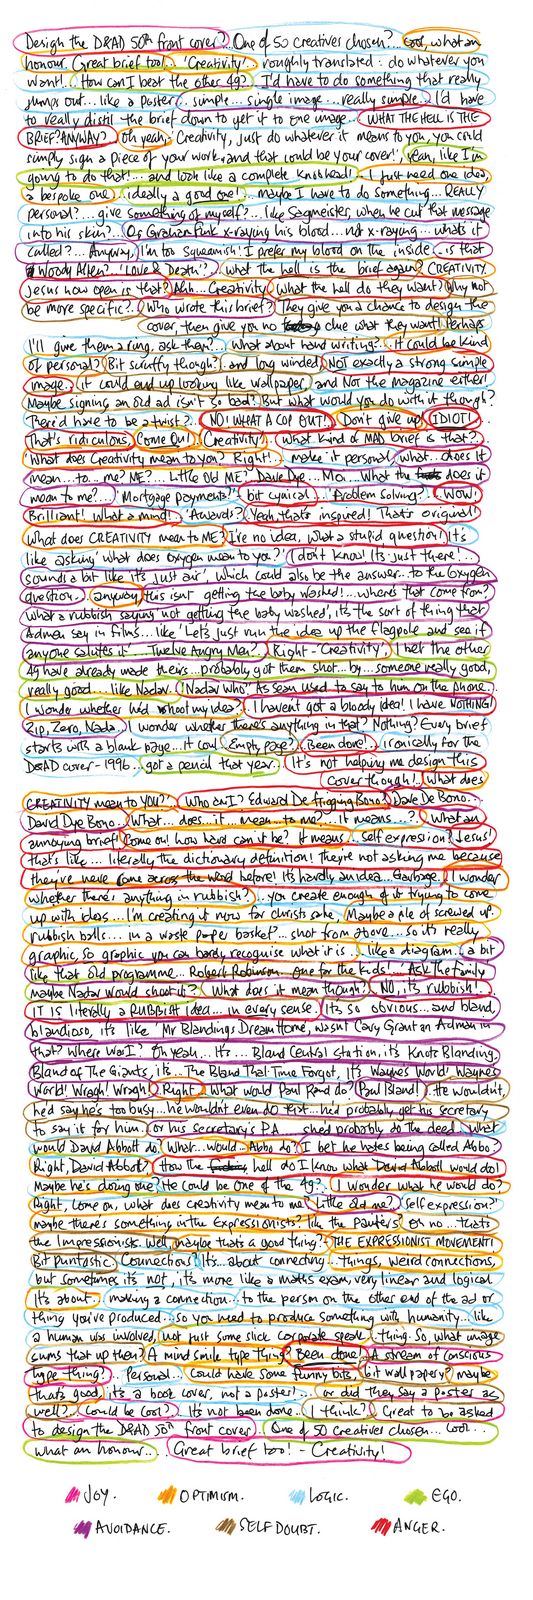 Design the D&AD 50th front cover?.. One of 50 creatives chosen?... Cool, what an
honour. Great brief too!... 'Creativity'... roughly translated: do whatever you
want!... How can I beat the other 49?.. I'd have to do something that really
jumps out... like a poster.. simple... single image... really simple.. I'd have
to really distil the brief down to get it to one image.. WHAT THE HELL IS THE
BRIEF? ANYWAY? Oh yeah, 'Creativity, just do whatever it means to you, you could
simply sign a piece of your work and that could be your cover!, Yeah, like I'm
going to do that!... and look like a complete knobhead!.. I just need one idea,
a bespoke one... ideally a good one!... maybe I have to do something... REALLY
personal?.... give something of myself?... like Sagmeister, when he cut that message
into his skin?.. Or Graham Fink x-raying his blood... not x-raying... whats it
called?... Anyway, I'm too squeamish! I prefer my blood on the inside.. is that
Woody Allen?.. 'Love & Death'?.. What the hell is the brief again? CREATIVITY.
Jesus how open is that? Ahh... Creativity. What the hell do they want? Why not
be more specific?.. Who wrote this brief? They give you a chance to design the
cover, then give you no clue what they want! Perhaps
I'll give them a ring, ask them?... What about hand writing?.. It could be kind
of personal? Bit scruffy though? and long winded, NOT exactly a strong simple
image.. it could end up looking like wallpaper, and Not the magazine either!
Maybe signing an old ad isn't so bad? But what would you do with it though?
There'd have to be a twist?.. NO! WHAT A COP OUT!.. Don't give up, IDIOT!..
That's ridiculous, Come On!.. Creativity.. What kind of MAD brief is that?.
'What does Creativity mean to you? Right!.. make it personal, what.. does it
mean... to... me? ME?... Little old ME? Dave Dye... Moi... What the does it
mean to me?... 'Mortgage payments?' bit cynical.. 'Problem solving?'.. WOW.
Brilliant! What a mind!... 'Awards?'. Yeah, that's inspired! That's original!
What does CREATIVITY mean to ME? I've no idea, what a stupid question! It's
like asking 'what does oxygen mean to you?' I don't know! Its just there!...
sounds a bit like 'it's just air', which could also be the answer... to the oxygen
question.. anyway, this isn't getting the baby washed!... where's that come from?
What a rubbish saying 'not getting the baby washed', it's the sort of thing that
Admen say in films... like 'Let's just run the idea up the flagpole and see if
anyone salutes it'... Twelve Angry Men?.. Right - 'Creativity'.. I bet the other
49 have already made theirs... probably got them shot... by... someone really good,
really good.... like Nadav.. 'Nadav Who' As Sean used to say to him on the phone..
I wonder whether he'd shoot my idea?.. I haven't got a bloody idea! I have NOTHING!
Zip, Zero, Nada.. I wonder whether there's anything in that? Nothing? Every brief
starts with a blank page... it coul Empty Page?. Been done!... ironically for the
D&AD cover - 1996.. got a pencil that year.. It's not helping me design this
cover though!.. What does
CREATIVITY mean to YOU?'.. Who am I? Edward De frigging Bono.. Dave De Bono..
David Dye Bono.. What... does.. it... mean... to me?... It means...?.. What an
annoying brief! Come on! how hard can it be? It means... self expression? Jesus!
that's like.... literally the dictionary definition! they're not asking me because
they've never come across the word before! Its hardly an idea.. Garbage.. I wonder
whether there's anything in rubbish?.. ..you create enough of it trying to come
up with ideas... I'm creating it now for christs sake, Maybe a pile of screwed up
rubbish balls.... in a waste paper basket?... shot from above.... so it's really
graphic, so graphic you can barely recognise what it is... like a diagram.. a bit
like that old programme... Robert Robinson.. one for the kids!... Ask The family
maybe Nadav would shoot it? What does it mean though? NO, it's rubbish!..
IT IS literally a RUBBISH idea... in every sense. It's so obvious... and bland,
blandioso, it's like 'Mr Blandings Dream Home, wasn't Cary Grant an Adman in
that? Where was I? Oh yeah... It's.... Bland Central station, it's Knots Blanding,
Bland of The Giants, it's... The Bland That Time Forgot, It's Waynes World! Waynes
World! Wragh! Wragh. Right.. What would Paul Rand do? Paul Bland! He wouldn't,
he'd say he's too busy....he wouldn't even do that... he'd probably get his secretary
to say it for him.. or his secretary's P.A.. she'd probably do the deed.. What
would David Abbott do. What... would... Abbo do? I bet he hates being called Abbo?
Right, David Abbott? How the hell do I know what David Abbott would do!
Maybe he's doing one? He could be one of the 49?. I wonder what he would do?
Right, come on, what does creativity mean to me? Little old me?. Self expression?'
maybe there's something in the Expressionists? like the painters? Oh no... that's
the Impressionists. Well, maybe that's a good thing? THE EXPRESSIONIST MOVEMENT!
Bit Puntastic. Connections? It's... about connecting... things, weird connections,
but sometimes it's not, it's more like a maths exam, very linear and logical.
It's about.. making a connection... to the person on the other end of the ad or
thing you've produced... so you need to produce something with humanity... like
a human was involved, not just some slick corporate speak thing. So, what image
sums that up then? A mind smile type thing? Been done! A stream of conscious
type thing?. Personal... Could have some funny bits, bit wall papery? maybe
that's good, it's a book cover, not a poster!... or did they say a poster as
well?.. Could be cool?.. It's not been done. I think?. Great to be asked
to design the D&AD 50th front cover.. One of 50 Creatives chosen... Cool...
what an honour... Great brief too! - Creativity!
JOY. OPTIMISM. LOGIC. EGO.
AVOIDANCE. SELF DOUBT. ANGER.